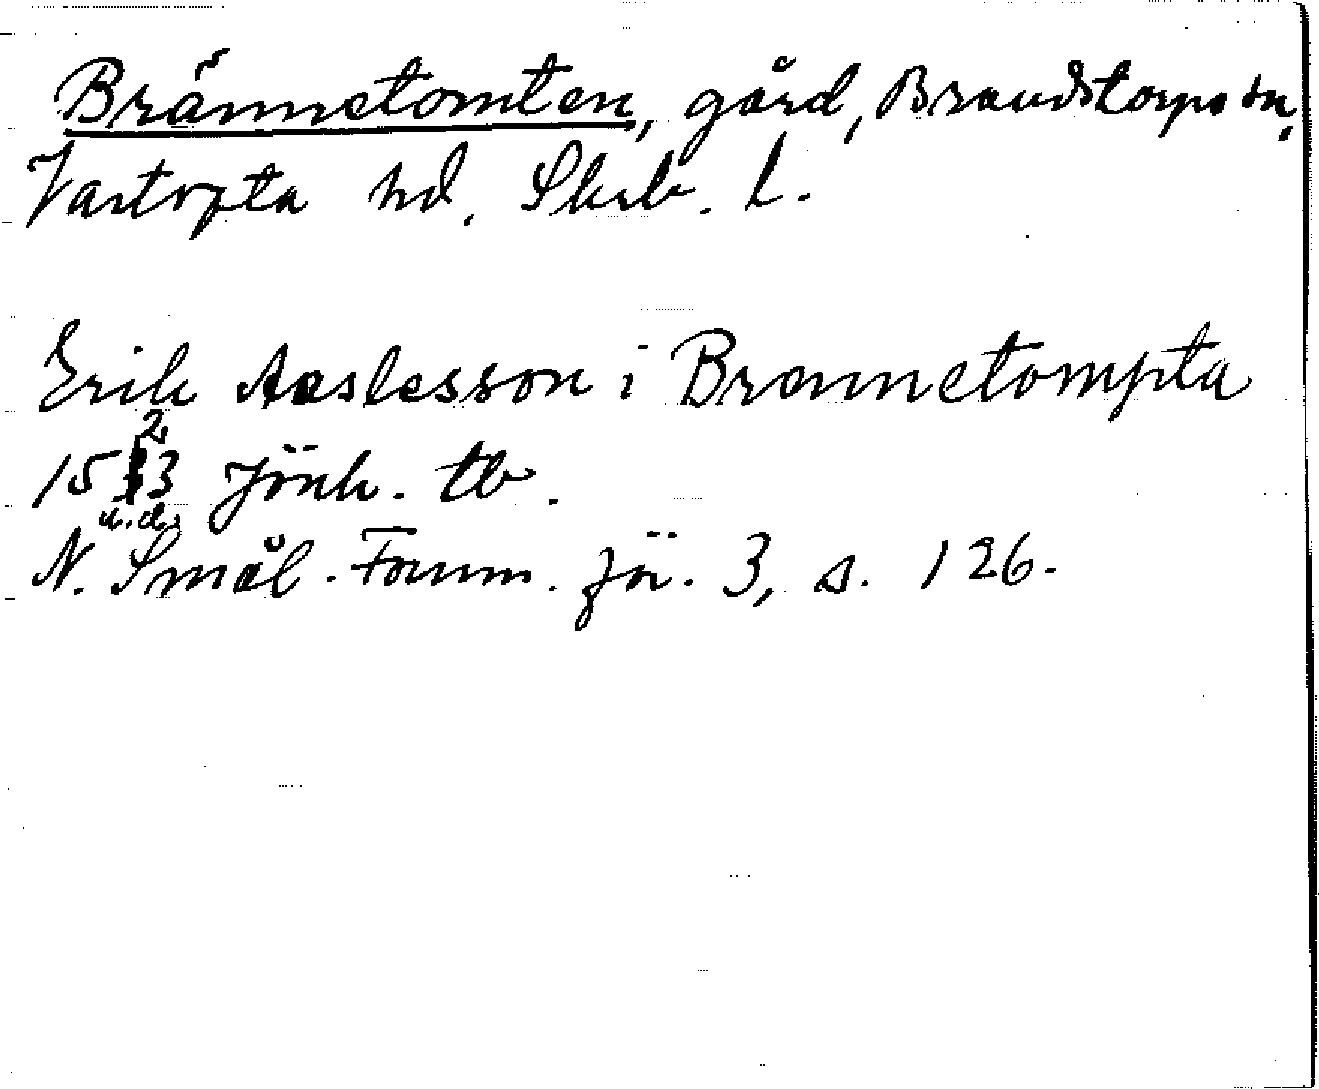 Brännetomten, gård, Brandstorps sn,
Vartofta hd. Skrb. L.
Erik Aeslesson i Brennetompta
1523 Jönk. tb.
u.d.
N. Smål. Fornm. för. 3, s. 126.